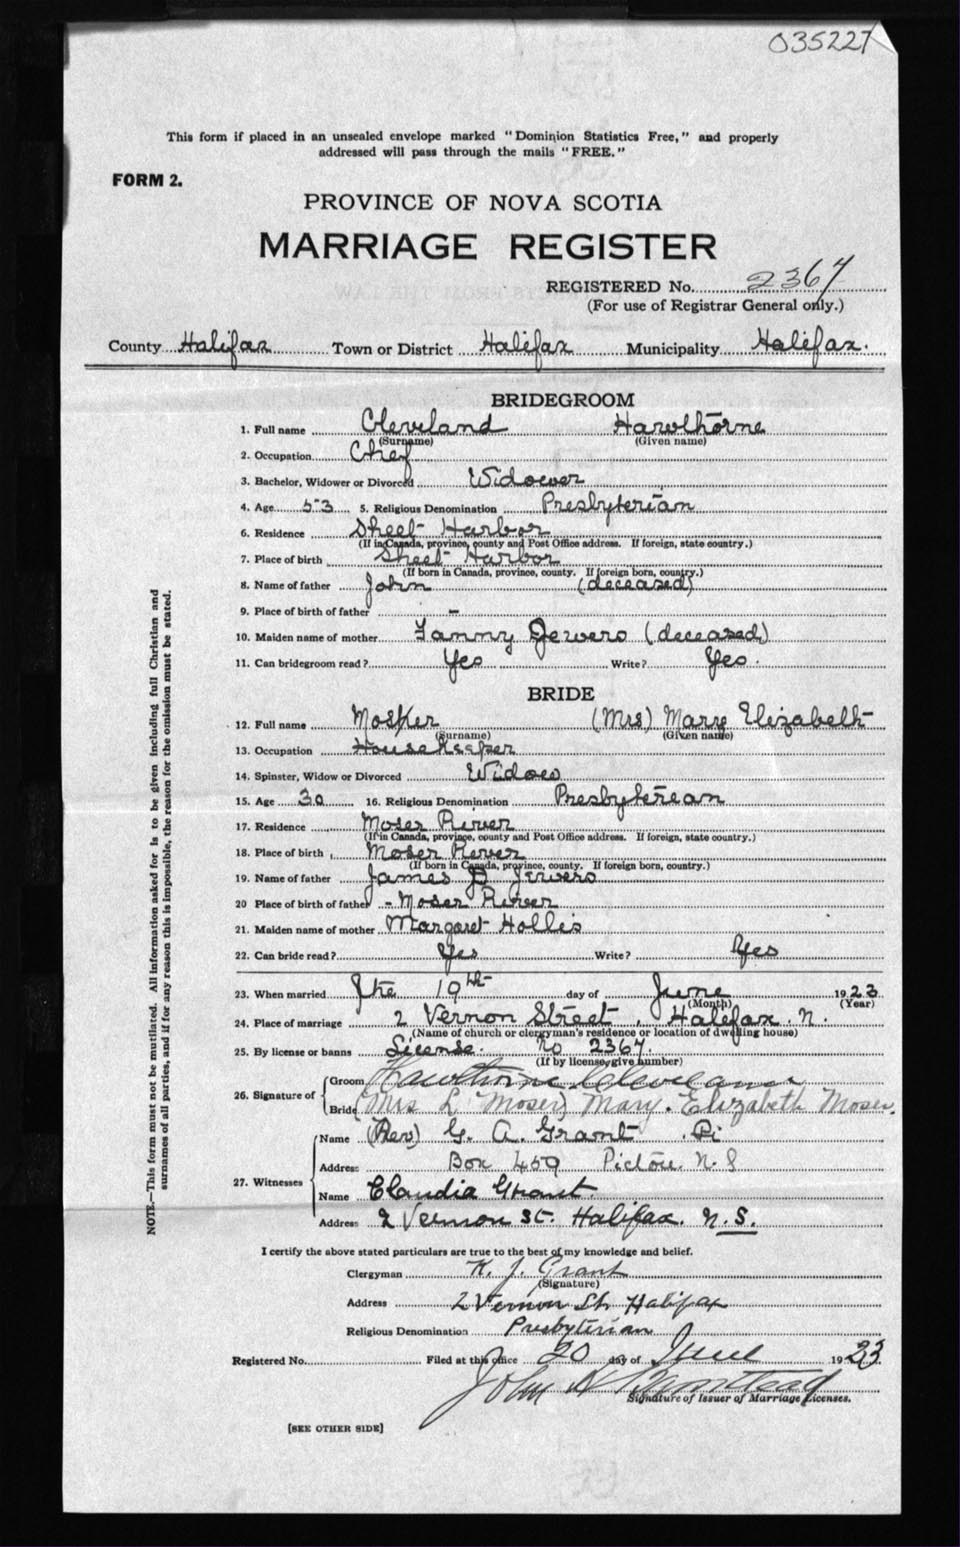 035227
This form if placed in an unsealed envelope marked "Dominion Statistics Free," and properly
addressed will pass through the mails "FREE."
FORM 2.
PROVINCE OF NOVA SCOTIA
MARRIAGE REGISTER
REGISTERED No. 2367
(For use of Registrar General only.)
County Halifax Town or District Halifax Municipality Halifax.
BRIDEGROOM
1. Full name Cleveland Hawthorne
(Surname) (Given name)
2. Occupation Chef
3. Bachelor, Widower or Divorced Widower
4. Age 53 5. Religious Denomination Presbyterian
6. Residence Sheet Harbor
(If in Canada, province, county and Post Office address. If foreign, state country.)
7. Place of birth Sheet Harbor
(If born in Canada, province, county. If foreign born, country.)
8. Name of father John (deceased)
9. Place of birth of father -
10. Maiden name of mother Fanny Jewers (deceased)
11. Can bridegroom read? Yes Write? Yes.
BRIDE
12. Full name Mosher (Mrs) Mary Elizabeth
(Surname) (Given name)
13. Occupation HouseKeeper
14. Spinster, Widow or Divorced Widow
15. Age 30 16. Religious Denomination Presbyterean
17. Residence Moser River
(If in Canada, province, county and Post Office address. If foreign, state country.)
18. Place of birth Moser River
(If born in Canada, province, county. If foreign born, country.)
19. Name of father James D Jewers
20 Place of birth of father - Moser River
21. Maiden name of mother Margaret Hollis
22. Can bride read? Yes Write? Yes
23. When married The 19th day of June 1923
(Month) (Year)
24. Place of marriage 2 Vernon Street, Halifax. N.
(Name of church or clergyman's residence or location of dwelling house)
25. By license or banns License. No 2367.
(If by license, give number)
26. Signature of Groom Hawthorne Cleveland
Bride (Mrs L Moser) Mary. Elizabeth Moser.
27. Witnesses
Name (Rev) G. A. Grant
Address Box 459 Pictou. N. S
Name Claudia Grant.
Address 2 Vernon St. Halifax. N. S.
I certify the above stated particulars are true to the best of my knowledge and belief.
Clergyman K. J. Grant
(Signature)
Address 2 Vernon St Halifax
Religious Denomination Presbyterian
Registered No. Filed at this office 20 day of June 1923
John H
Signature of Issuer of Marriage Licenses.
[SEE OTHER SIDE]
NOTE.—This form must not be mutilated. All information asked for is to be given including full Christian and
surnames of all parties, and if for any reason this is impossible, the reason for the omission must be stated.